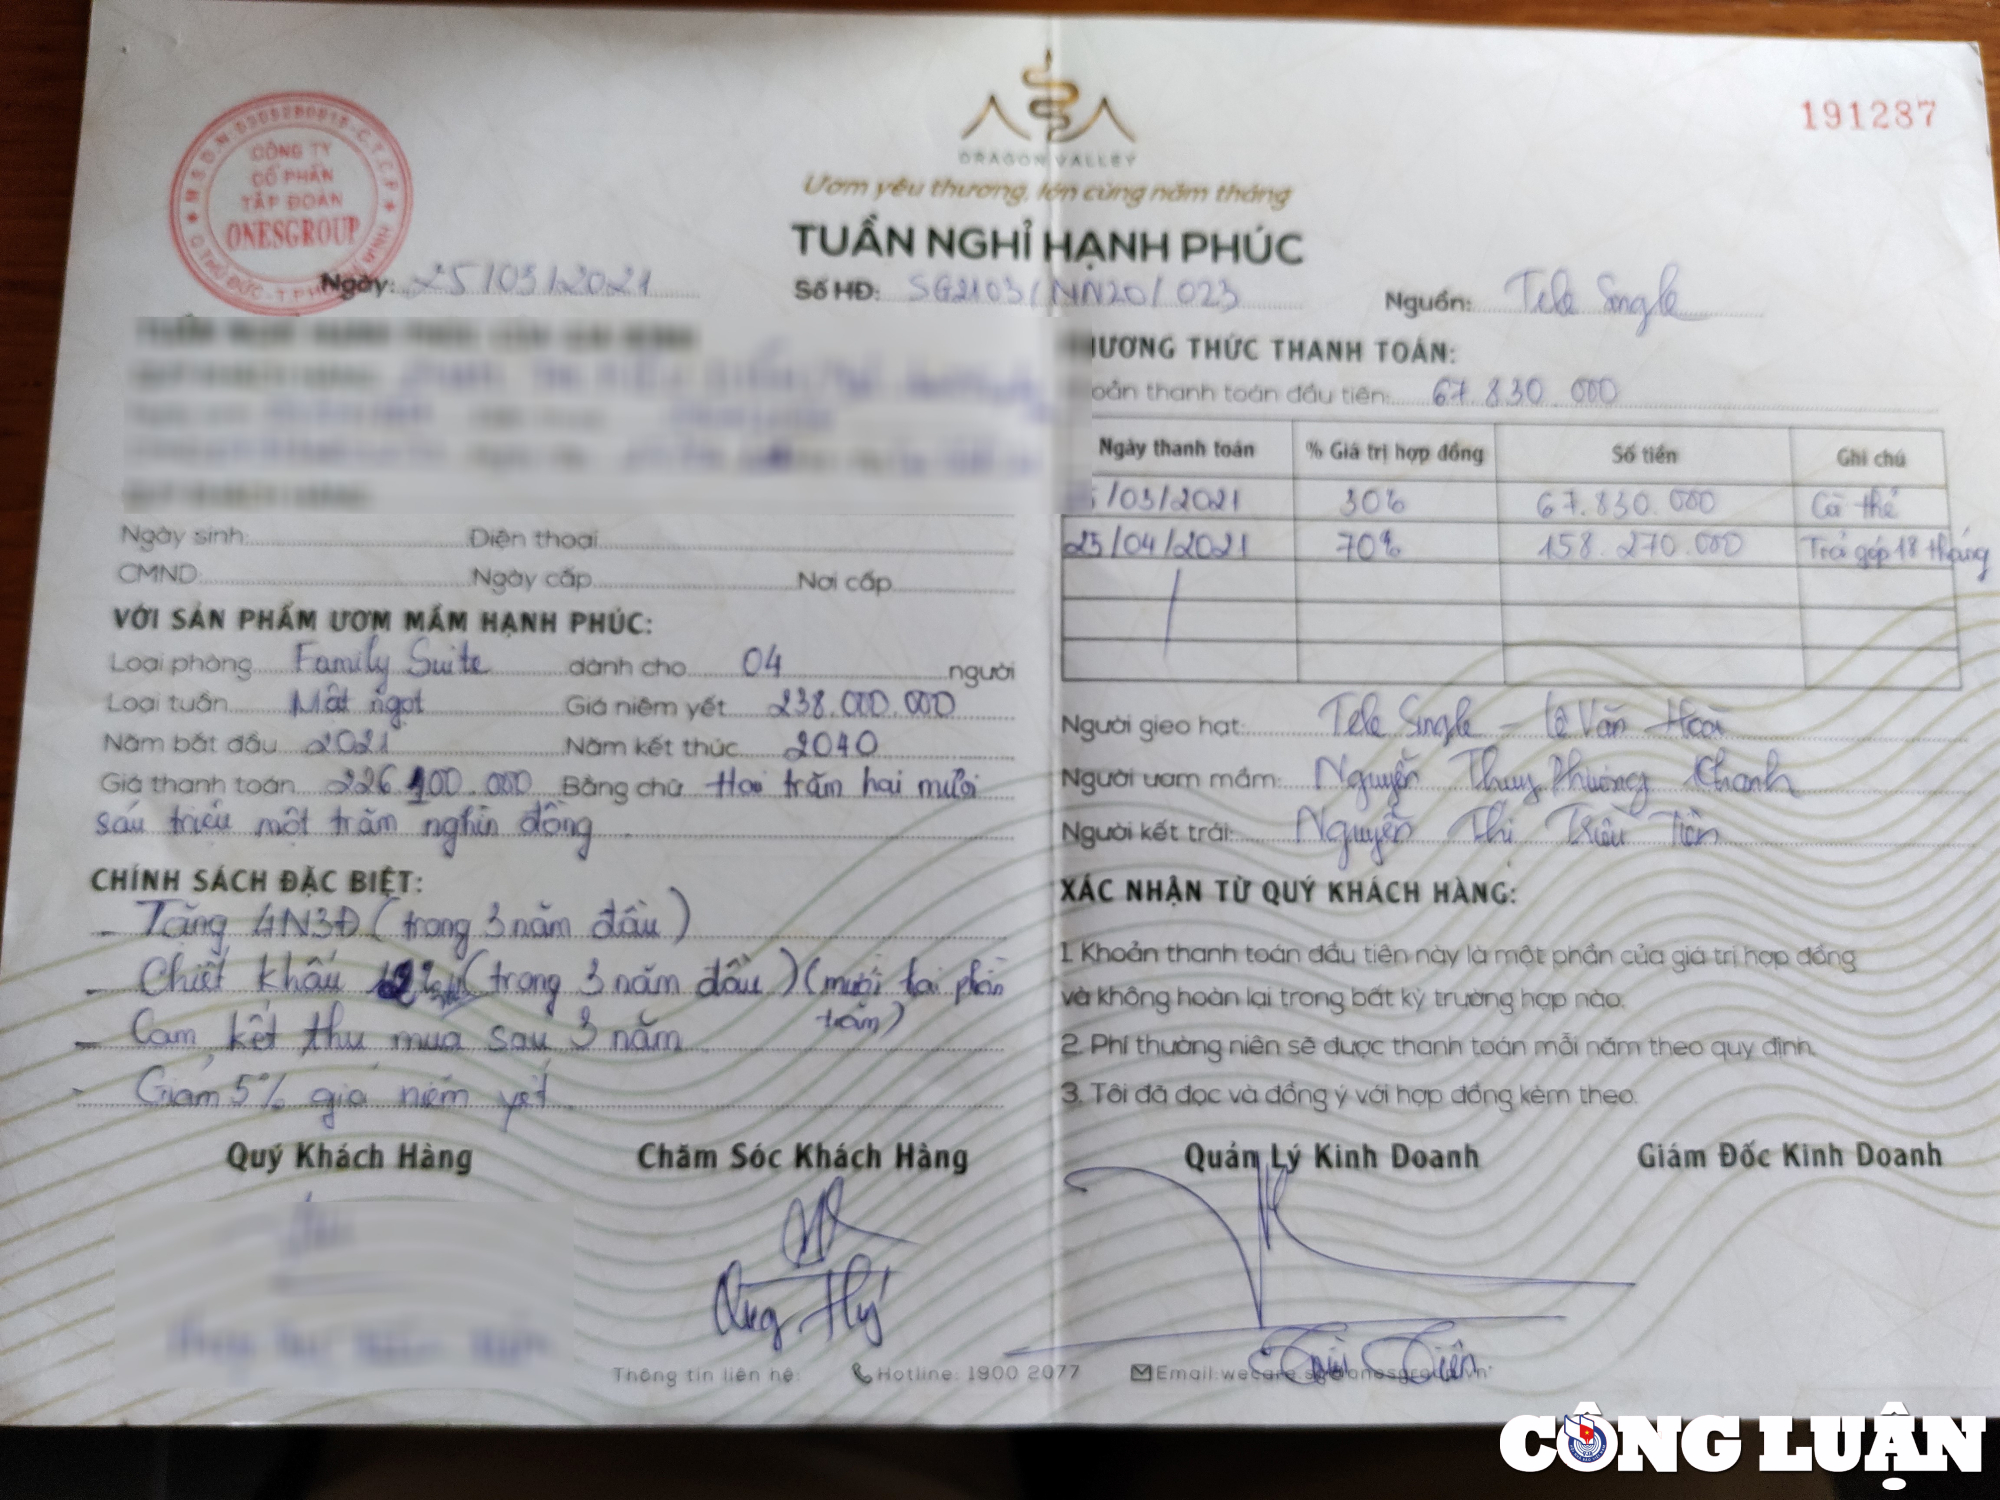 191287
M.S.D.N: C.T.C.P
CÔNG TY
CỔ PHẦN
TẬP ĐOÀN
ONESGROUP
DRAGON VALLEY
Ươm yêu thương, lớn cùng năm tháng
TUẦN NGHỈ HẠNH PHÚC
Ngày: 25/03/2021
Số HĐ: SG2103/NN20/023
Nguồn: Tele Single
ƯƠNG THỨC THANH TOÁN:
oản thanh toán đầu tiên: 67.830.000
Ngày thanh toán % Giá trị hợp đồng Số tiền Ghi chú
/03/2021 30% 67.830.000 Cà thẻ
25/04/2021 70% 158.270.000 Trả góp 18 tháng
Ngày sinh: Điện thoại
CMND Ngày cấp Nơi cấp
VỚI SẢN PHẨM ƯƠM MẦM HẠNH PHÚC:
Loại phòng Family Suite dành cho 04 người
Loại tuần Mật ngọt Giá niêm yết 238.000.000
Năm bắt đầu 2021 Năm kết thúc 2040
Giá thanh toán 226.100.000 Bằng chữ Hai trăm hai mươi
sáu triệu một trăm nghìn đồng
Người gieo hạt: Tele Single - Lê Văn Hoài
Người ươm mầm: Nguyễn Thuỵ Phương Khanh
Người kết trái: Nguyễn Thị Triều Tiên
CHÍNH SÁCH ĐẶC BIỆT:
- Tặng 4N3Đ (trong 3 năm đầu)
- Chiết khấu 12% (trong 3 năm đầu) (mười hai phần
trăm)
- Cam kết thu mua sau 3 năm
- Giảm 5% giá niêm yết
XÁC NHẬN TỪ QUÝ KHÁCH HÀNG:
1. Khoản thanh toán đầu tiên này là một phần của giá trị hợp đồng
và không hoàn lại trong bất kỳ trường hợp nào.
2. Phí thường niên sẽ được thanh toán mỗi năm theo quy định.
3. Tôi đã đọc và đồng ý với hợp đồng kèm theo.
Quý Khách Hàng Chăm Sóc Khách Hàng Quản Lý Kinh Doanh Giám Đốc Kinh Doanh
Thông tin liên hệ: Hotline: 1900 2077 Email:
CÔNG LUẬN